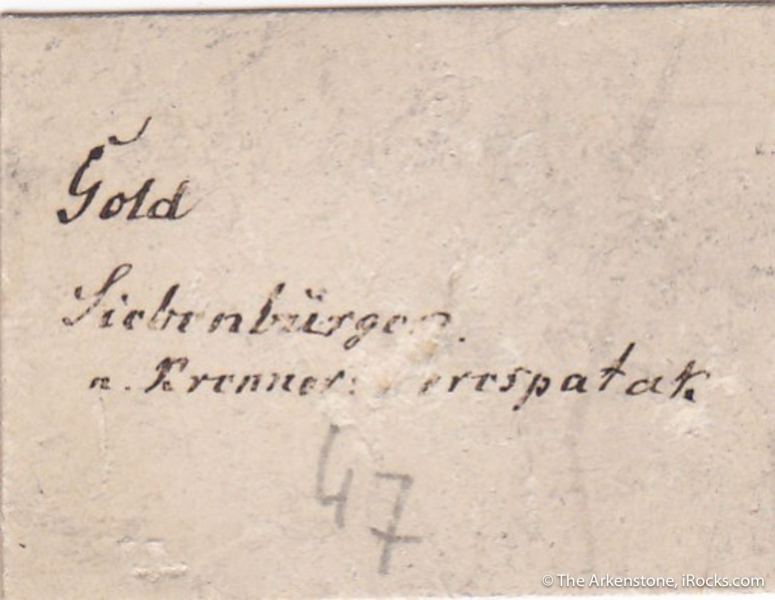 Gold
Siebenbürgen.
n. Krenner:
47
© The Arkenstone, iRocks.com